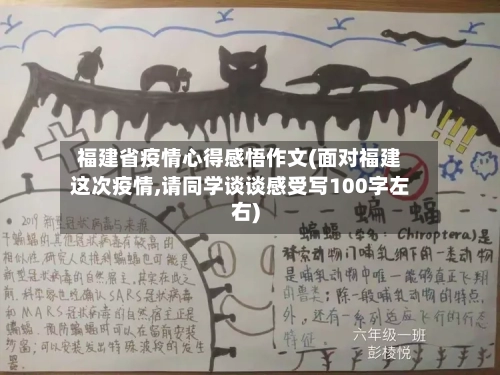 福建省疫情心得感悟作文(面对福建
这次疫情,请同学谈谈感受写100字左
右)
2019新型冠状病毒与来源
于蝙蝠的其他冠状病毒有较高的
相似性,研究人员推测蝙蝠也可能是
新型冠状病毒的自然宿主,其实在此之
前,科学家也经确认SARS冠状病毒
和MARS冠状病毒的自然宿主正是
蝙蝠,预防蝙蝠时可以在窗前安装
纱窗,可以安装发出特殊波段的发生
器
蝙蝠
蝙蝠(学名:Chiroptera)是
脊索动物门哺乳纲下的一类动物
是哺乳动物中唯一能够真正飞翔
的兽类;除一般哺乳动物的特点
外,还有一系列适应飞行的行态
特征.
六年级一班
彭棱悦